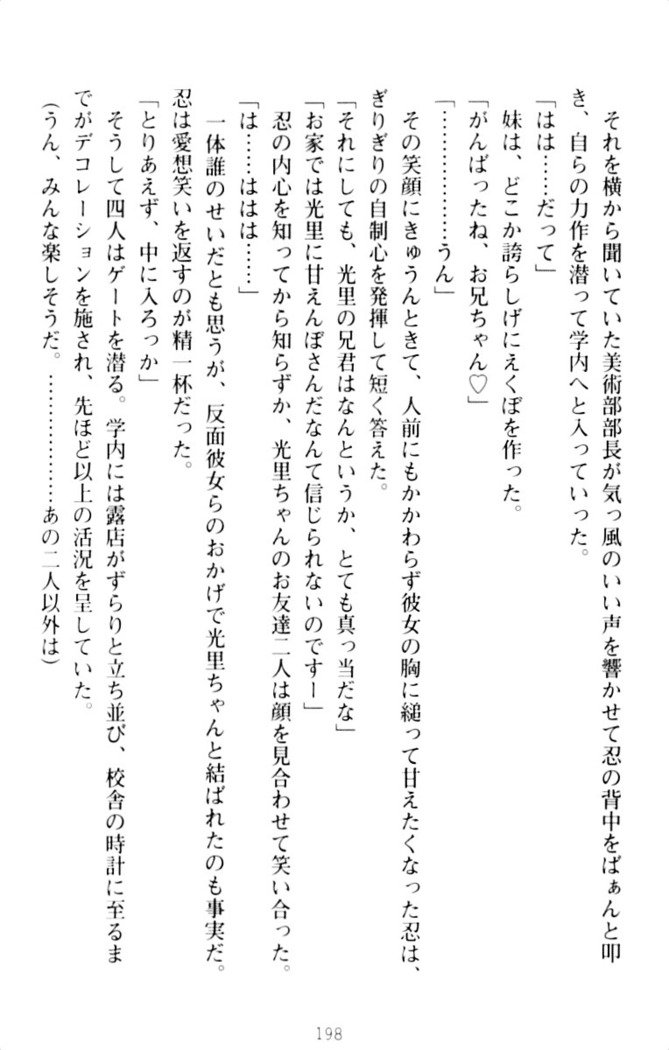 それを横から聞いていた美術部部長が気っ風のいい声を響かせて忍の背中をばぁんと叩
き、自らの力作を潜って学内へと入っていった。
「はは……だって」
妹は、どこか誇らしげにえくぼを作った。
「がんばったね、お兄ちゃん♡」
「………………うん」
その笑顔にきゅうんときて、人前にもかかわらず彼女の胸に縋って甘えたくなった忍は、
ぎりぎりの自制心を発揮して短く答えた。
「それにしても、光里の兄君はなんというか、とても真っ当だな」
「お家では光里に甘えんぼさんだなんて信じられないのですー」
忍の内心を知ってから知らずか、光里ちゃんのお友達二人は顔を見合わせて笑い合った。
「は……ははは……」
一体誰のせいだとも思うが、反面彼女らのおかげで光里ちゃんと結ばれたのも事実だ。
忍は愛想笑いを返すのが精一杯だった。
「とりあえず、中に入ろっか」
そうして四人はゲートを潜る。学内には露店がずらりと立ち並び、校舎の時計に至るま
でがデコレーションを施され、先ほど以上の活況を呈していた。
(うん、みんな楽しそうだ。………………あの二人以外は)
198